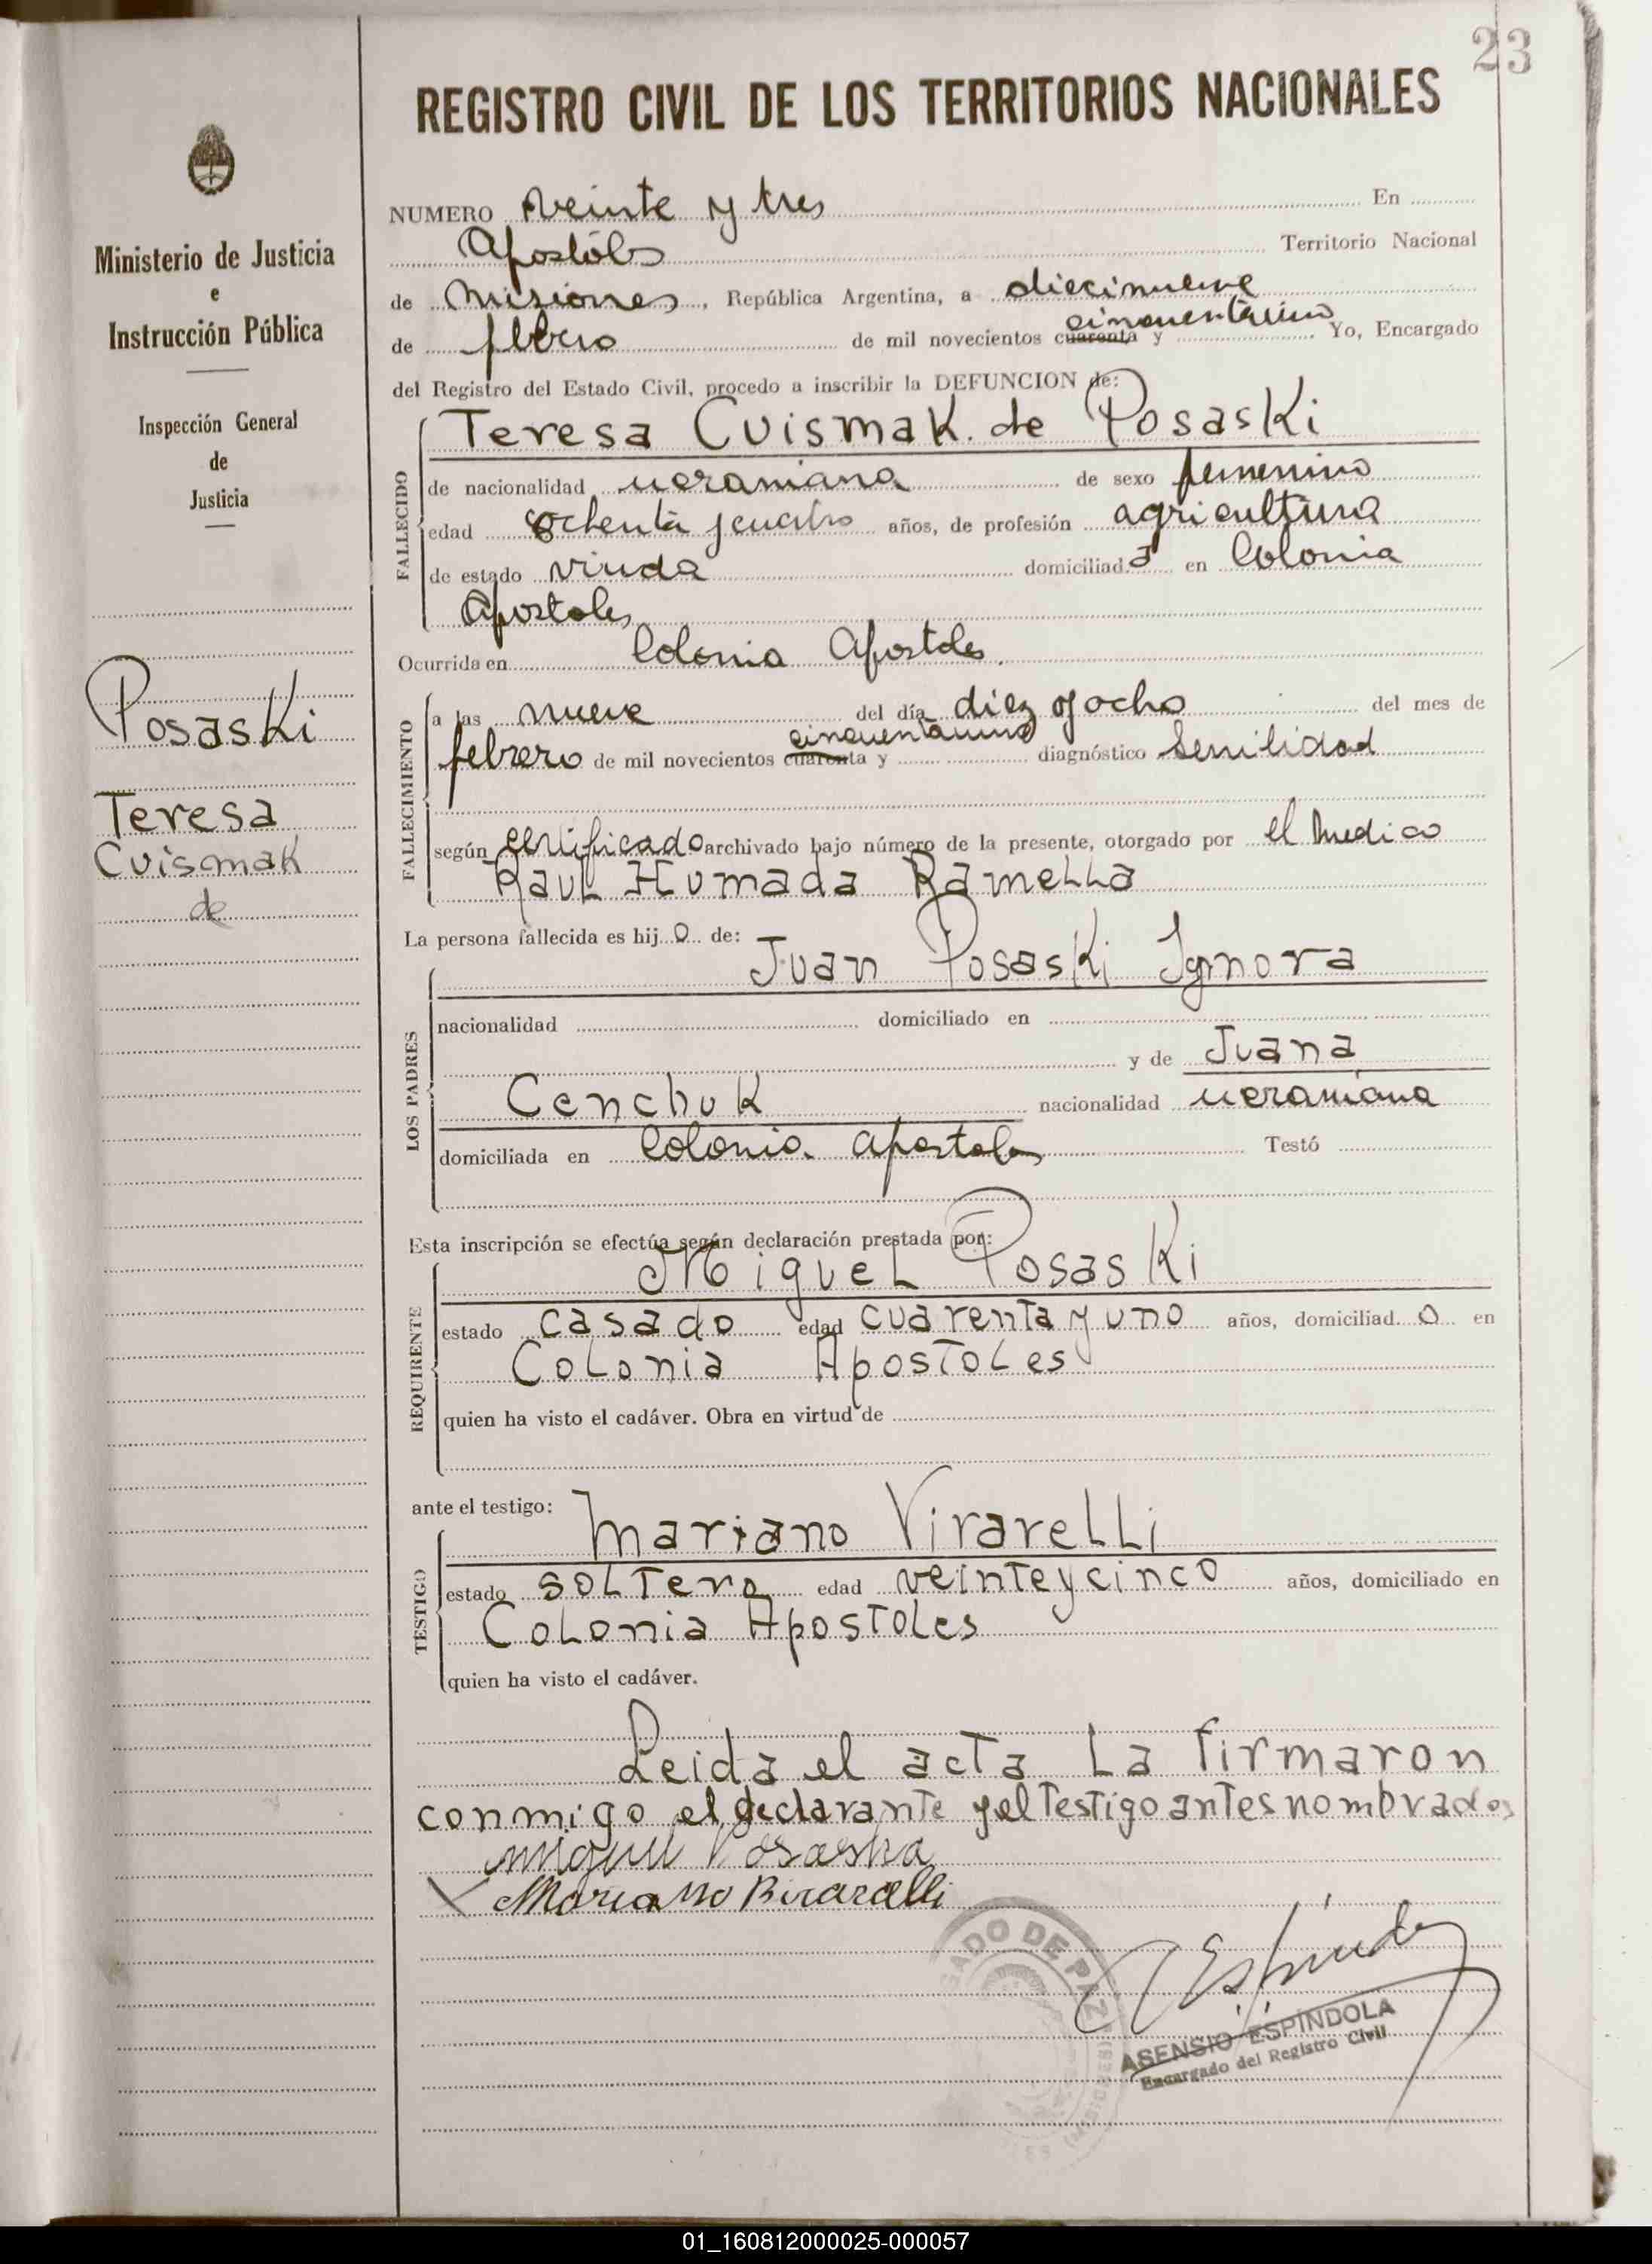 23
REGISTRO CIVIL DE LOS TERRITORIOS NACIONALES
Ministerio de Justicia
e
Instrucción Pública
Inspección General
de
Justicia
Posaski
Teresa
Cuismak
de
NUMERO veinte y tres En
Apostóles Territorio Nacional
de misiones, República Argentina, a diecinueve
cincuentaiuno
de febrero de mil novecientos cuarenta y Yo, Encargado
del Registro del Estado Civil, procedo a inscribir la DEFUNCION de:
Teresa Cuismak de Posaski
FALLECIDO
de nacionalidad ucraniana de sexo femenino
edad ochenta y cuatro años, de profesión agricultura
de estado viuda domiciliad a en Colonia
Apostoles
Ocurrida en Colonia Apostoles.
FALLECIMIENTO
a las nueve del día diez y ocho del mes de
cincuentaiuno
febrero de mil novecientos cuarenta y diagnóstico Senilidad
según certificado archivado bajo número de la presente, otorgado por el medico
Raul Humada Ramella
La persona fallecida es hij o de:
Juan Posaski Ignora
LOS PADRES
nacionalidad domiciliado en
y de Juana
Cenchuk nacionalidad ucraniana
domiciliada en Colonia Apostoles Testó
Esta inscripción se efectúa según declaración prestada por:
Miguel Posaski
REQUIRENTE
estado casado edad cuarenta y uno años, domiciliad o en
Colonia Apostoles
quien ha visto el cadáver. Obra en virtud de
ante el testigo:
Mariano Virarelli
TESTIGO
estado soltero edad veinte y cinco años, domiciliado en
Colonia Apostoles
quien ha visto el cadáver.
Leida el acta la firmaron
conmigo el declarante y el testigo antes nombrados
Miguel Posaska
Mariano Birarelli
GADO DE PAZ
Espindola
ASENSIO ESPÍNDOLA
Encargado del Registro Civil
01_160812000025-000057